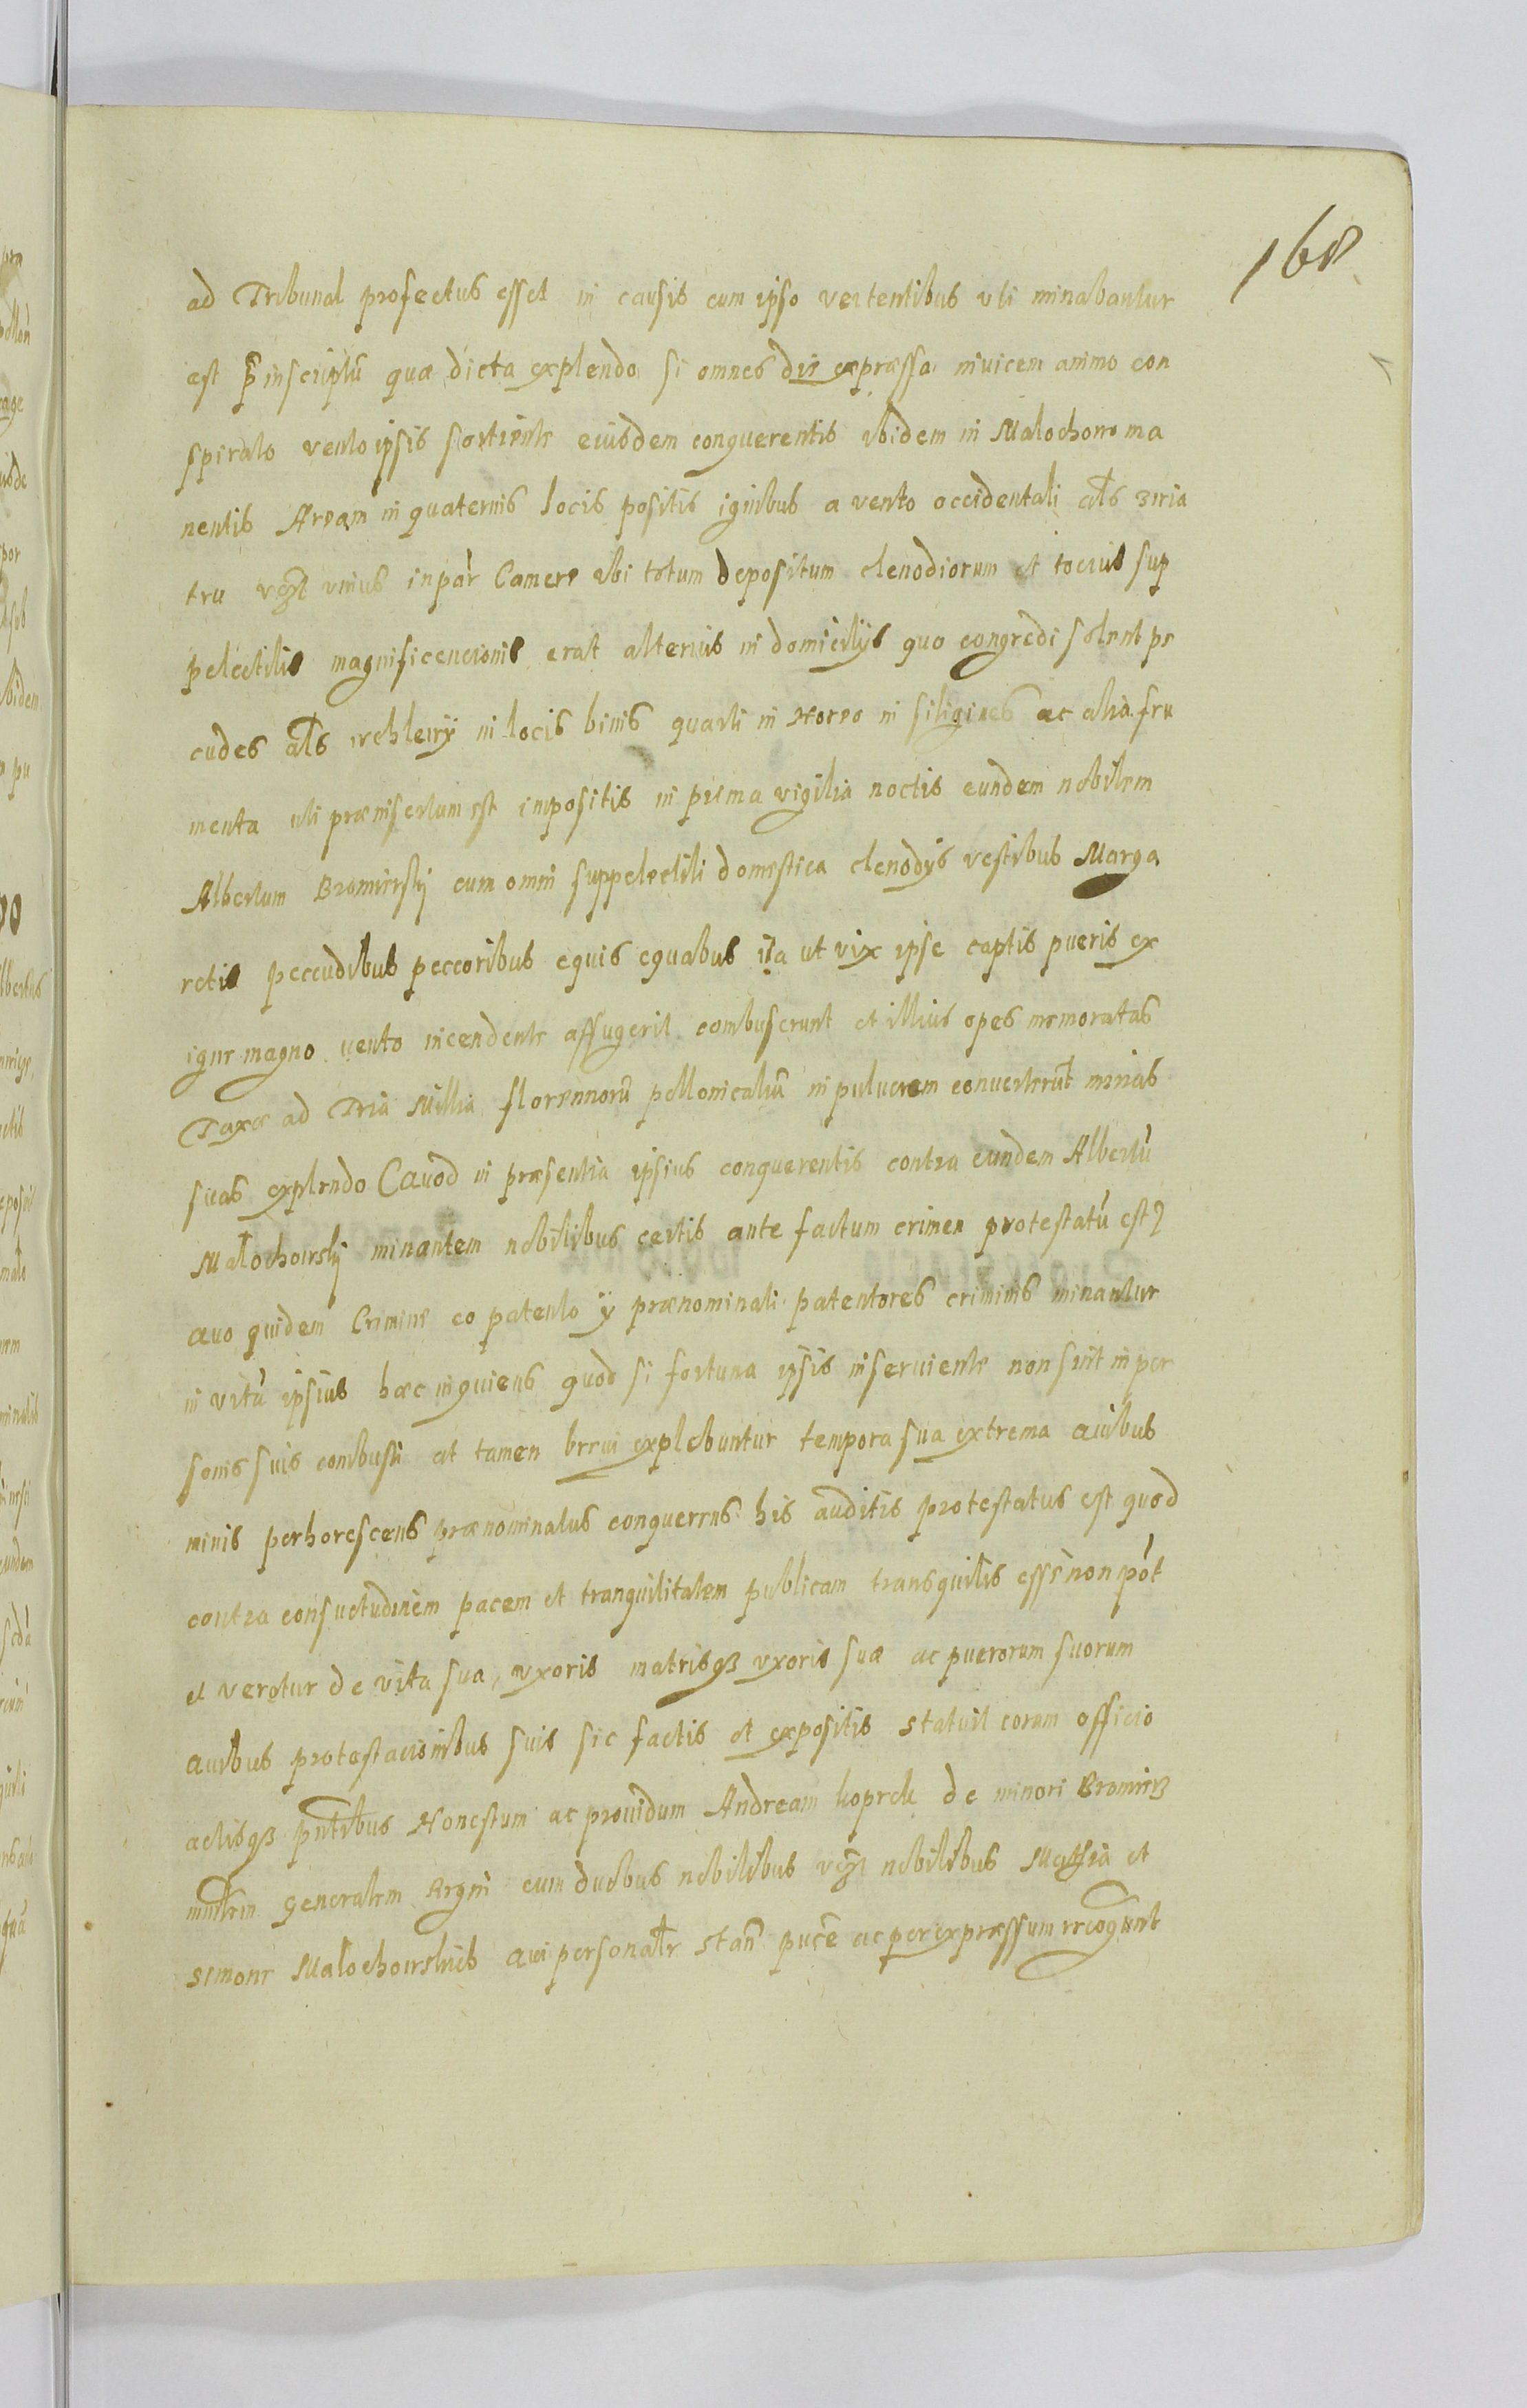 168
ad Tribunal profectus esset in causis cum ipso vertentibus vti minabantur
est inscriptũ quæ dicta explendo si omnes expræssa inuicem animo con
spirato vento ipsis eiusdem conquerentis ibidem in Małochowo ma
nentis Aream in quaternis locis positis ignibus a vento occidentali als
tru vnius Camere vbi totum depositum clenodiorum et tocius sup
pelectilis magnificencionis erat alterius in domicilijs quo congredi solent pe
cudes als in locis binis quarti in Horeo in siligines ac alia fru
menta uti præinsertum est inpositis in prima vigilia noctis eundem nobilem
Albertum Bromirsky cum omni suppelectili domestica clenodys vestibus Marga
retis peccudibus peccoribus equis equabus ita ut vix ipse captis pueris ex
igne magno vento incendente affugerit combuserunt et illius opes memoratas
Taxæ ad Tria Millia florennorũ pollonicaliũ in puluerem conuerterũt minas
suas explendo in præsentia ipsius conquerentis contra eundem Albertũ
Małochowsky minantem nobilibus certis ante factum crimen protestatũ est
quidem Crimine eo patento præenominati patentores criminis minantur
in vitã ipsius hæc inquiens quod si fortuna ipsis inseruiente non sint in per
sonis suis combusti at tamen breui explebuntur tempora sua extrema
minis perhorescens prænominatus conquerens his auditis protestatus est quod
contra consuetudinem pacem et tranquilitatem publicam transquilis esse non pót
et veretur de vita sua, vxoris matrisqз vxoris suæ ac puerorum suorum
protestacionibus suis sic factis et expositis statuit coram officio
actisqз pntibus Honestum ac prouidum Andream de minori
generalem Regni cum duobus nobilibus nobilibus et
Simone personalr stan ac per expræssum